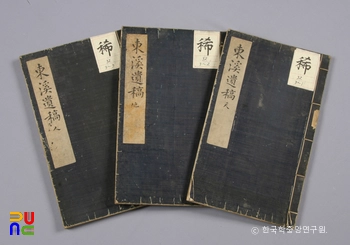 稀
東溪遺稿 人
稀
東溪遺稿 地
稀
東溪遺稿 天
ⓒ 한국학중앙연구원